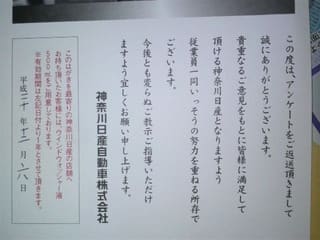 この度は、アンケートをご返送頂きまして
誠にありがとうございます。
貴重なるご意見をもとに皆様に満足して
頂ける神奈川日産となりますよう
従業員一同いっそうの努力を重ねる所存で
ございます。
今後とも変らぬご教示ご指導いただけ
ますよう宜しくお願い申し上げます。
神奈川日産自動車株式会社
このはがきを最寄りの神奈川日産の店舗へ
お持ち頂いたお客様には、ウインドウォッシャー液
500mlをご用意しております。
※有効期間は左記日付より1年とさせて頂きます。
平成二十年十二月八日